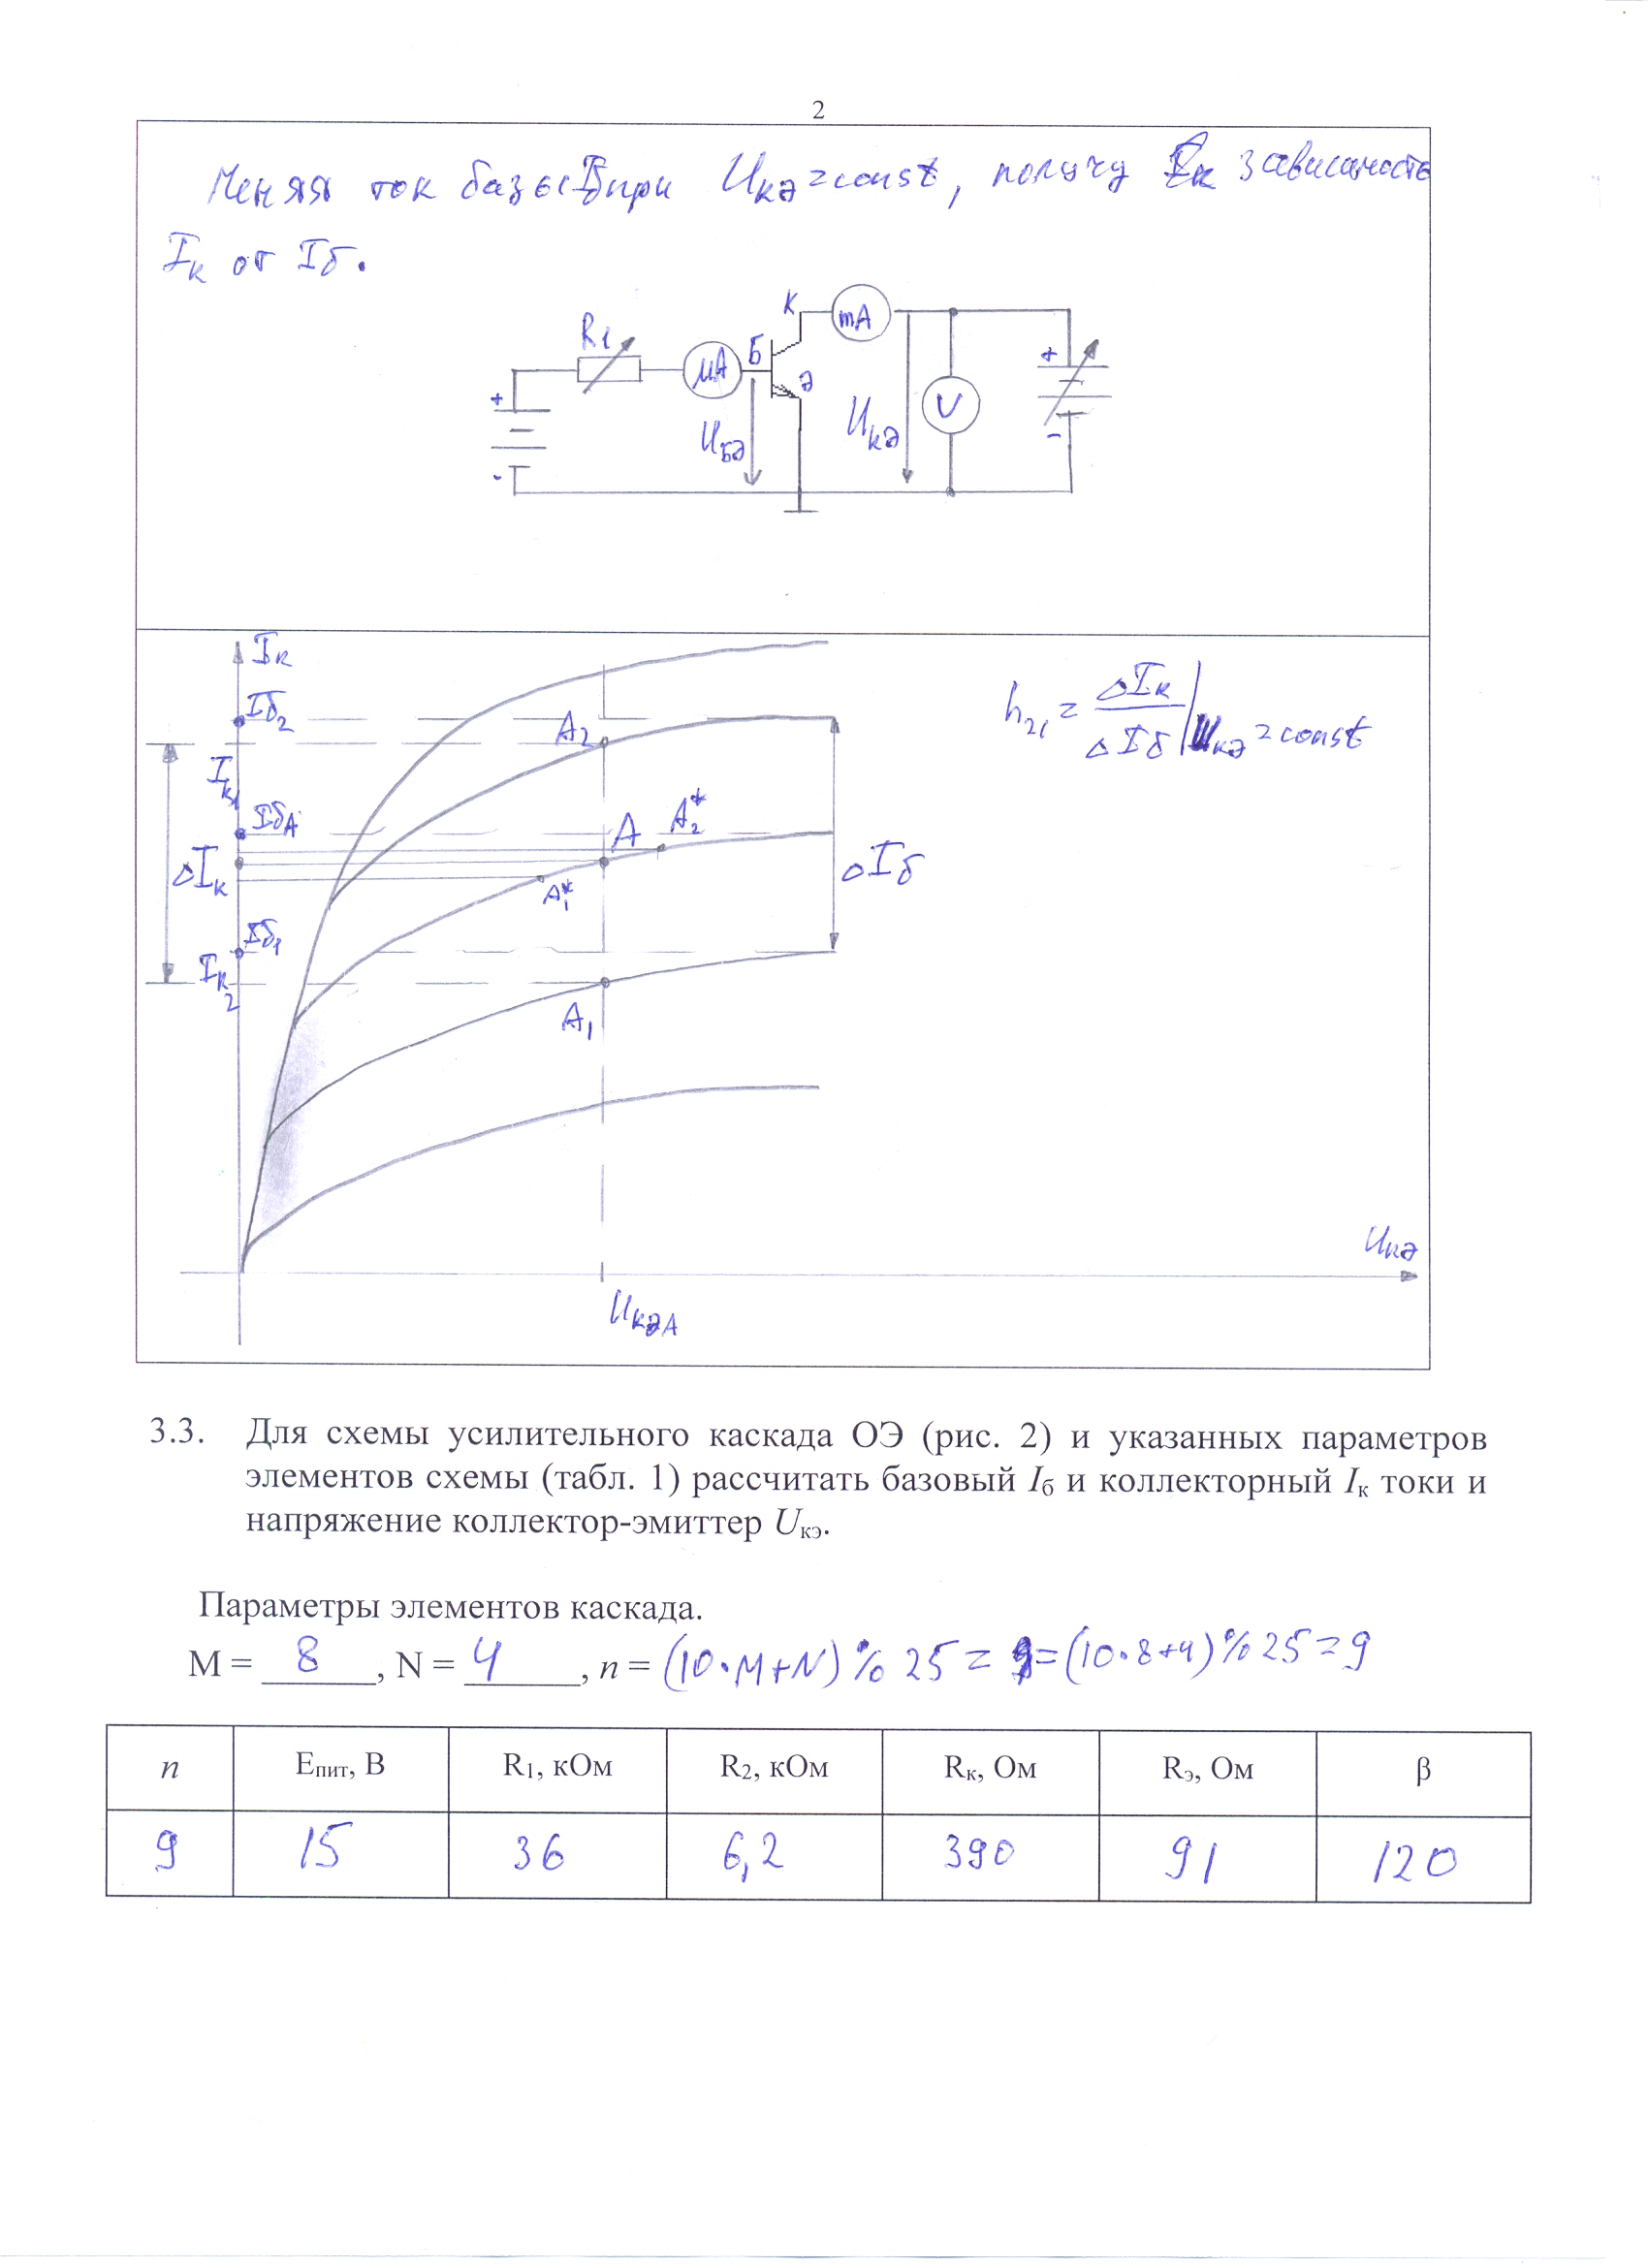 2
Меняя ток базы Iб при Uкэ=const, получу зависимость
Iк от Iб.
R1
μA
Б
К
mA
Э
Uбэ
Uкэ
V
+
-
+
-
Iк
Iб2
Iк1
IбA
ΔIк
Iб1
Iк2
A2
A
A2*
A1*
A1
ΔIб
h21 = ΔIк / ΔIб | Uкэ = const
Uкэ
UкэA
3.3. Для схемы усилительного каскада ОЭ (рис. 2) и указанных параметров
элементов схемы (табл. 1) рассчитать базовый Iб и коллекторный Iк токи и
напряжение коллектор-эмиттер Uкэ.
Параметры элементов каскада.
M = 8, N = 4, n = (10·M+N) % 25 = 9 = (10·8+4) % 25 = 9
n Eпит, В R1, кОм R2, кОм Rк, Ом Rэ, Ом β
9 15 36 6,2 390 91 120